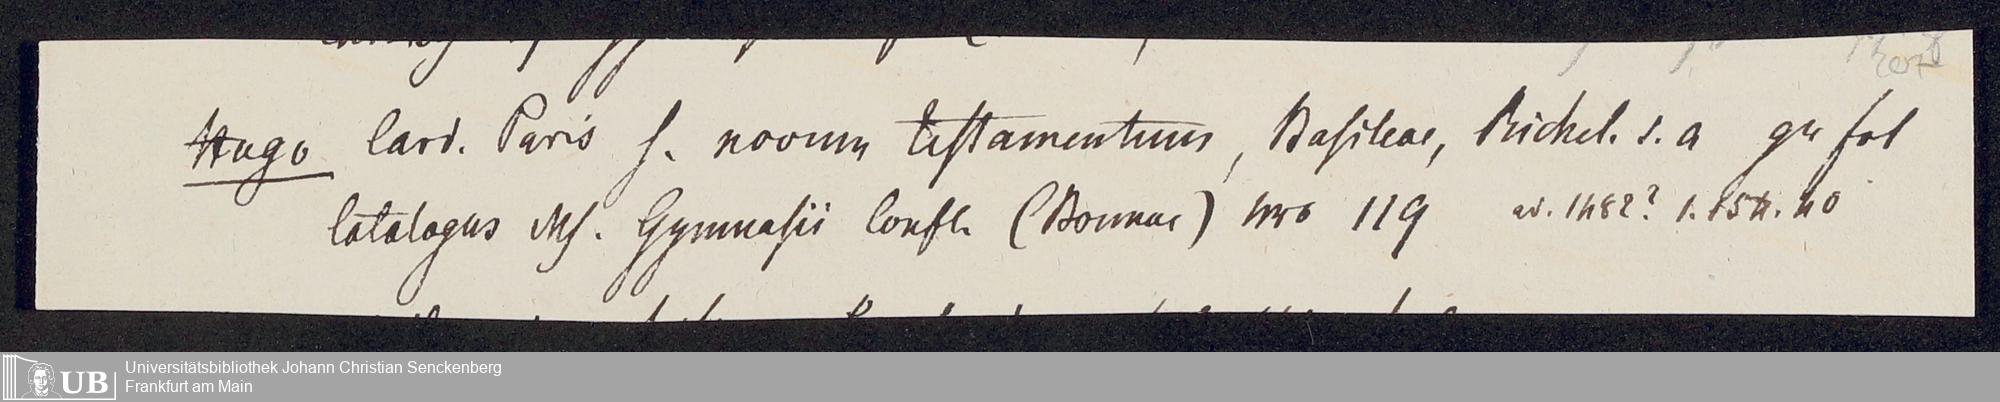 Hugo Card. Paris s. novum testamentum, Basileae, Richel. s. a gr fol
Catalogus Ms. Gymnasii Confl. (Bonnae) nro 119 ad. 1482? s. 154. 40
Universitätsbibliothek Johann Christian Senckenberg
UB Frankfurt am Main